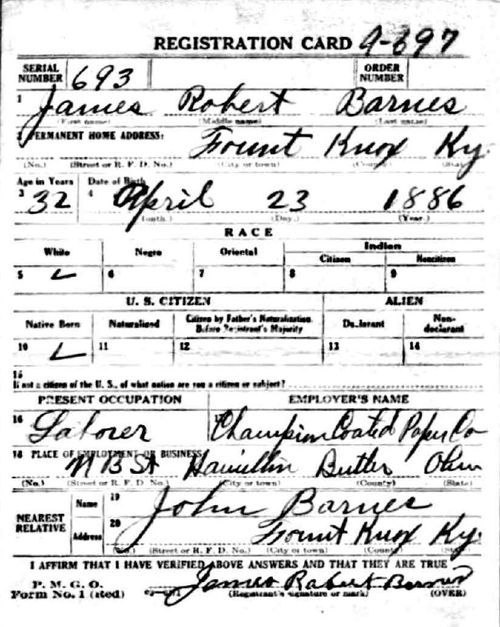 REGISTRATION CARD
SERIAL NUMBER 693 ORDER NUMBER
1 James Robert Barnes
(First name) (Middle name) (Last name)
2 PERMANENT HOME ADDRESS: Fount Knox Ky
(No.) (Street or R. F. D. No.) (City or town) (County) (State)
Age in Years Date of Birth
3 32 4 April 23 1886
(Month.) (Day.) (Year.)
RACE
White Negro Oriental Indian
Citizen Noncitizen
5 6 7 8 9
U. S. CITIZEN ALIEN
Native Born Naturalized Citizen by Father's Naturalization Before Registrant's Majority Declarant Non-declarant
10 11 12 13 14
15
If not a citizen of the U. S., of what nation are you a citizen or subject?
PRESENT OCCUPATION EMPLOYER'S NAME
16 Laborer Champion Coated Paper Co
18 PLACE OF EMPLOYMENT OR BUSINESS:
N B St Hamilton Butler Ohio
(No.) (Street or R. F. D. No.) (City or town) (County) (State)
NEAREST RELATIVE Name 19 John Barnes
Address 20 Fount Knox Ky.
(No.) (Street or R. F. D. No.) (City or town) (County) (State)
I AFFIRM THAT I HAVE VERIFIED ABOVE ANSWERS AND THAT THEY ARE TRUE
P. M. G. O.
Form No. 1 James Robert Barnes
(Registrant's signature or mark) (OVER)